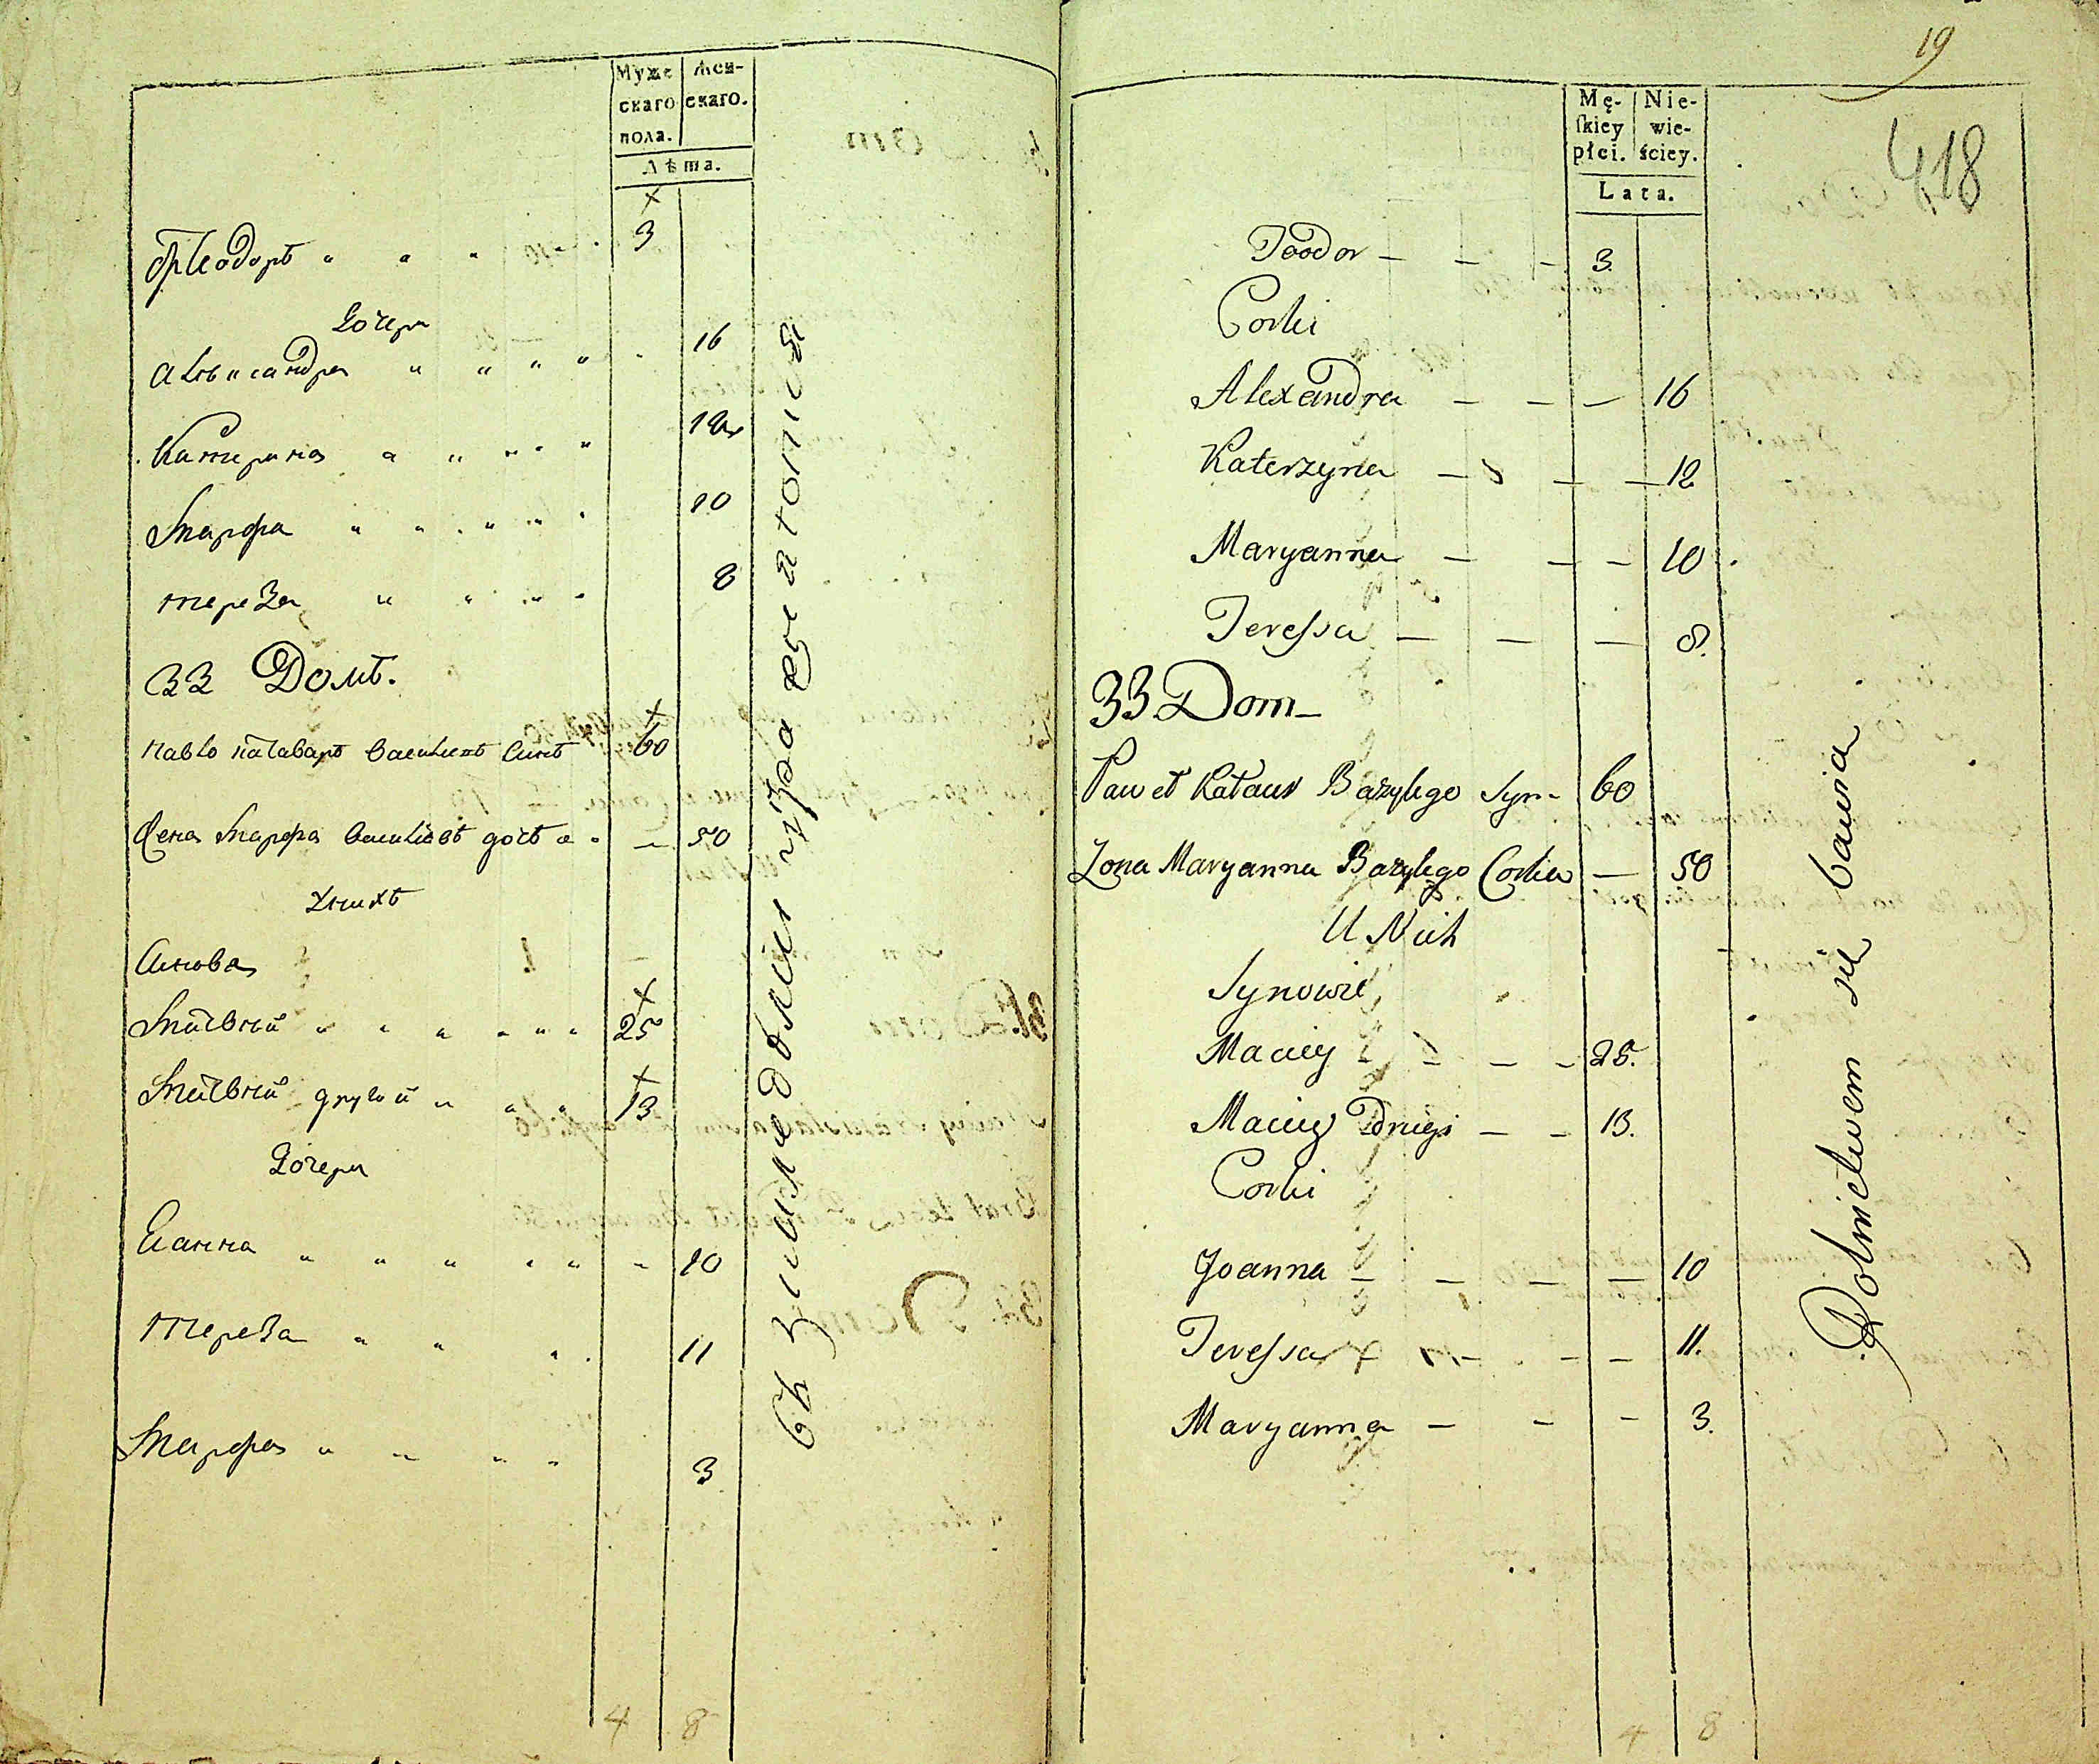 Муже Жен-
скаго скаго.
пола.
Лѣта.
Ѳеодоръ 3
Дочери
Александра 16
Катерина 12
Марфа 10
тереза 8
33 Домъ.
Павло Василiевъ Синъ 60
Жена Марфа Василiевъ дочъ 50
У нихъ
Синова
Матвѣй 25
Матвѣй другiй 13
Дочери
Еанна 10
Тереза 11
Марфа 3
4 8
19
418
Mę- Nie-
skiey wie-
płci. ściey.
Lata.
Teodor — — — 3.
Corki
Alexandra — — — 16
Katerzyna — — — 12
Maryanna — — — 10
Teressa — — — 8.
33 Dom
Paweł Bazylego Syn 60
Zona Maryanna Bazylego Corka — 50
U Nich
Synowie
Maciey — — — 25.
Maciey Drugi — — 13.
Corki
Joanna — — — — 10
Teressa — — 11.
Maryanna — — — 3.
Rolnictwem się bawią
4 8